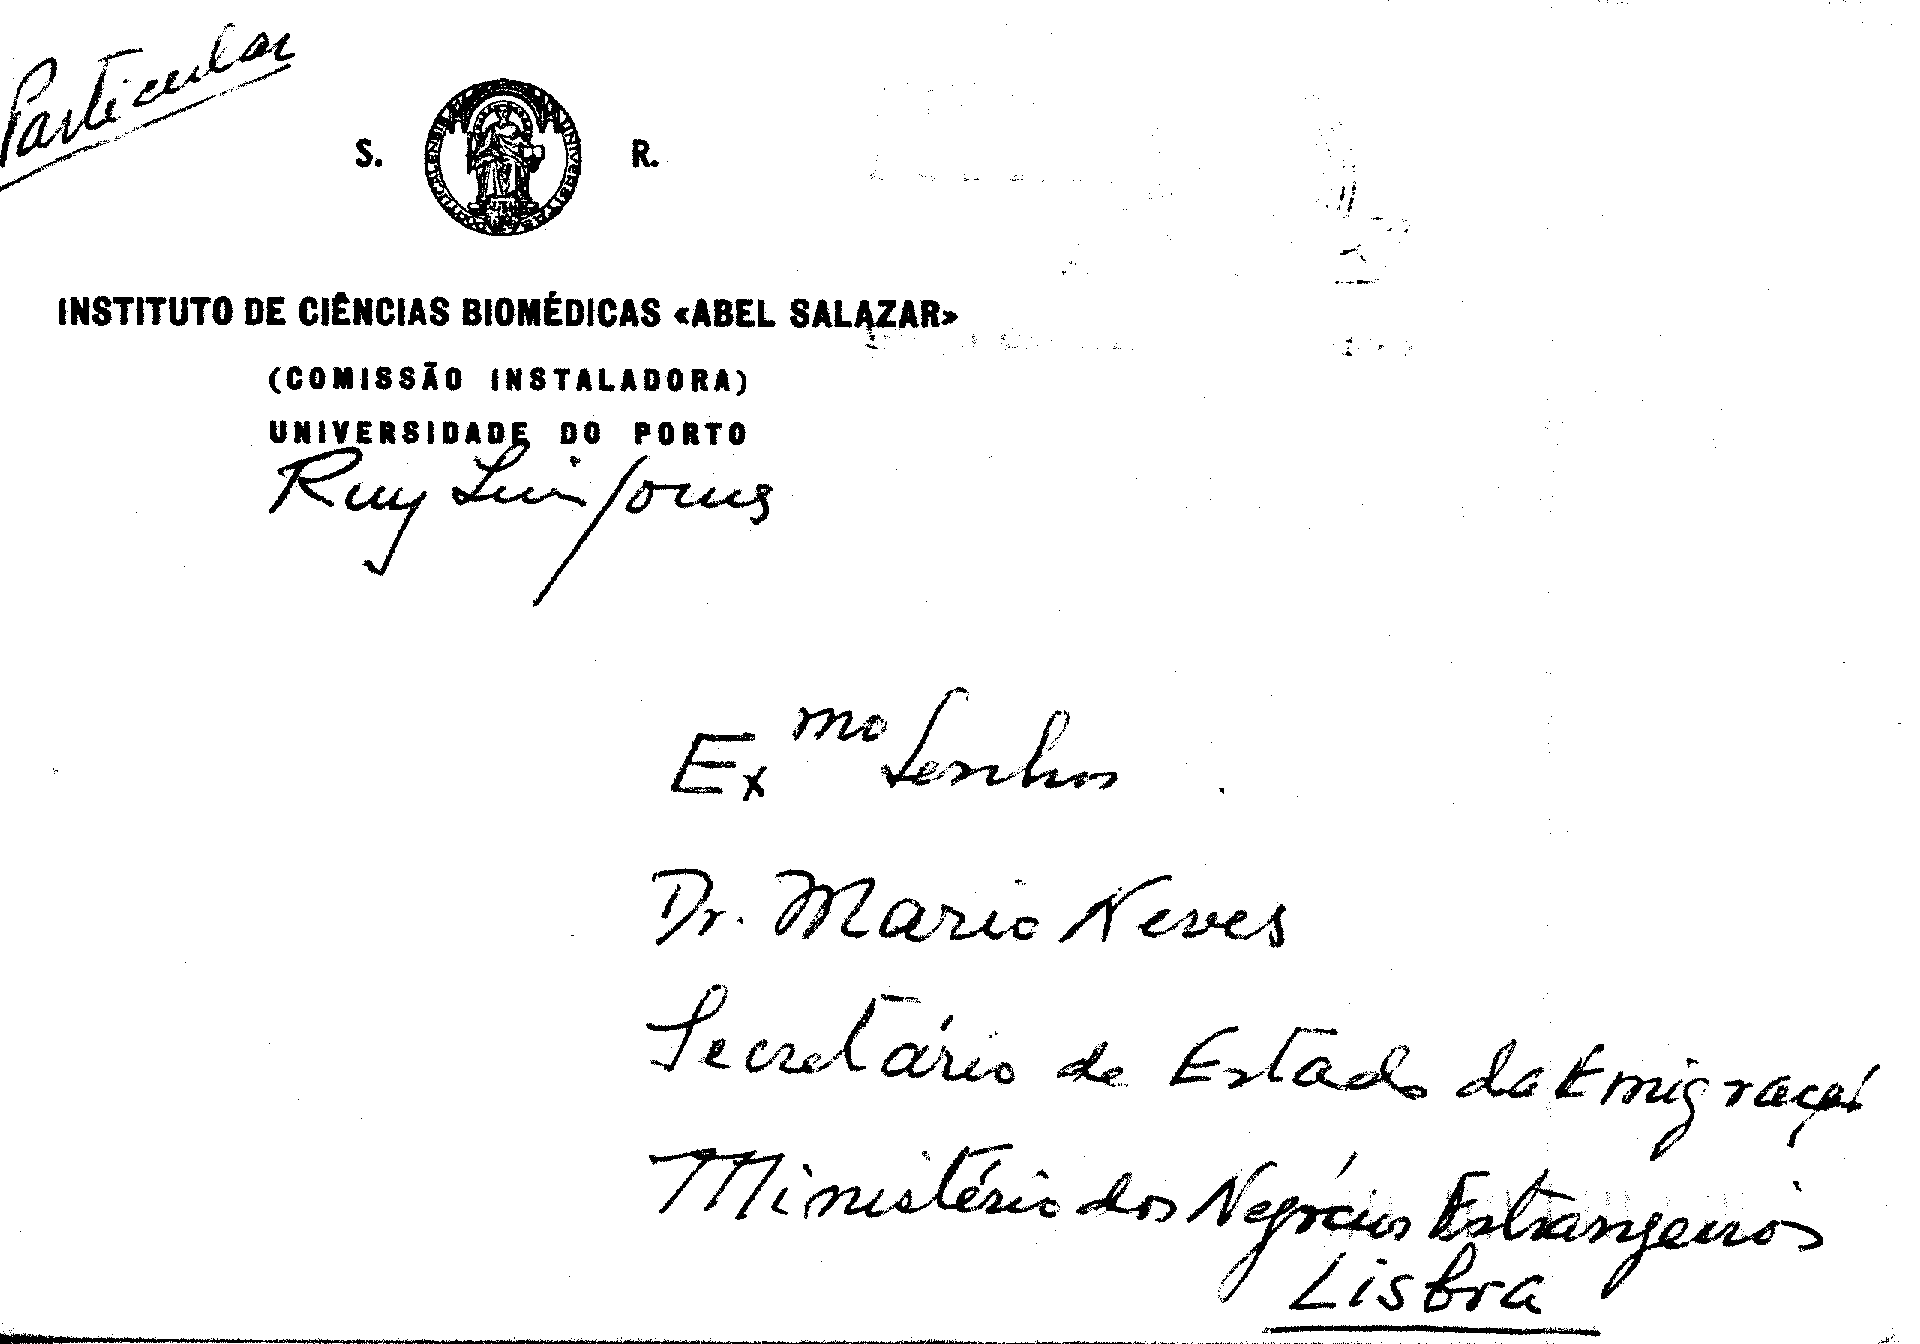 Particular
S. R.
INSTITUTO DE CIÊNCIAS BIOMÉDICAS «ABEL SALAZAR»
(COMISSÃO INSTALADORA)
UNIVERSIDADE DO PORTO
Ruy Luis Gomes
Ex mo Senhor
Dr. Mario Neves
Secretário de Estado da Emigração
Ministério dos Negócios Estrangeiros
Lisboa